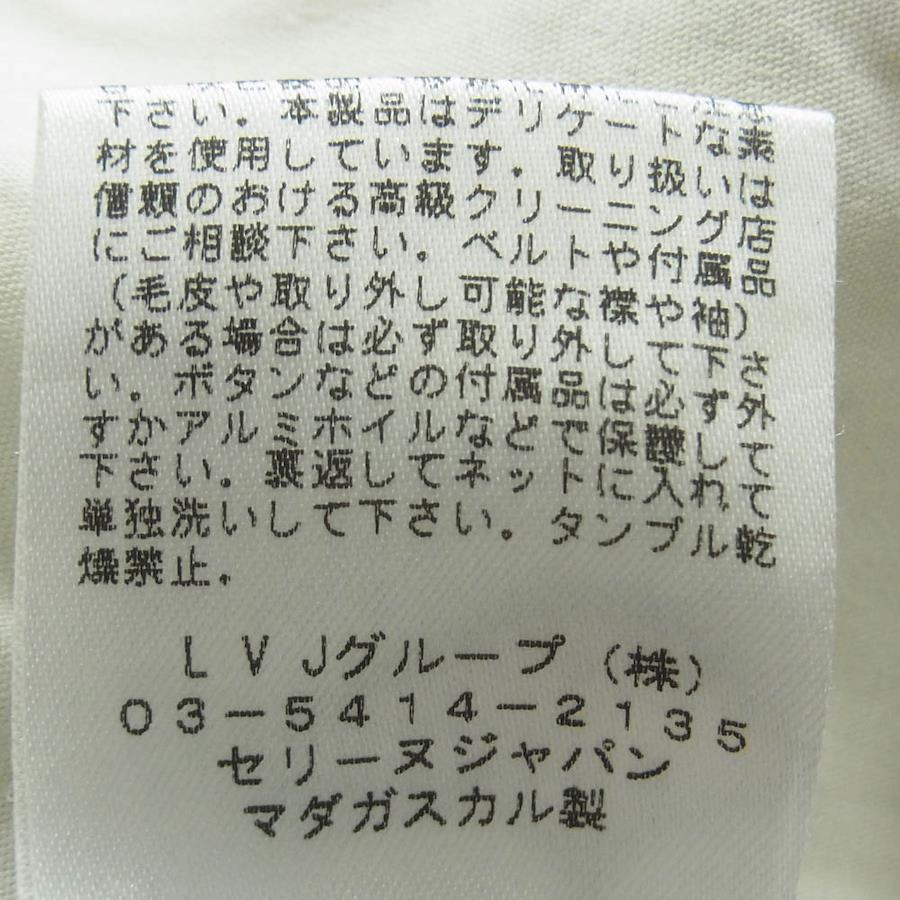 下さい。本製品はデリケートな素
材を使用しています。取り扱いは
信頼のおける高級クリーニング店
にご相談下さい。ベルトや付属品
(毛皮や取り外し可能な襟や袖)
がある場合は必ず取り外して下さ
い。ボタンなどの付属品は必ず外て
すかアルミホイルなどで保護して
下さい。裏返してネットに入れて
単独洗いして下さい。タンブル乾
燥禁止。
LVJグループ(株)
03-5414-2135
セリーヌジャパン
マダガスカル製